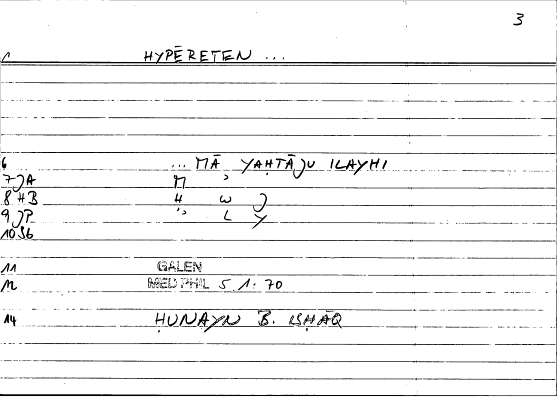 3
1 HYPĒRETEN ...
6 ... MĀ YAḤTĀJU ILAYHI
7 JA M ʾ
8 HB Ḥ W J
9 JP ʾʾ L Y
10 S6
11 GALEN
12 MED PHIL 5 1. 70
14 ḤUNAYN B. ISḤĀQ